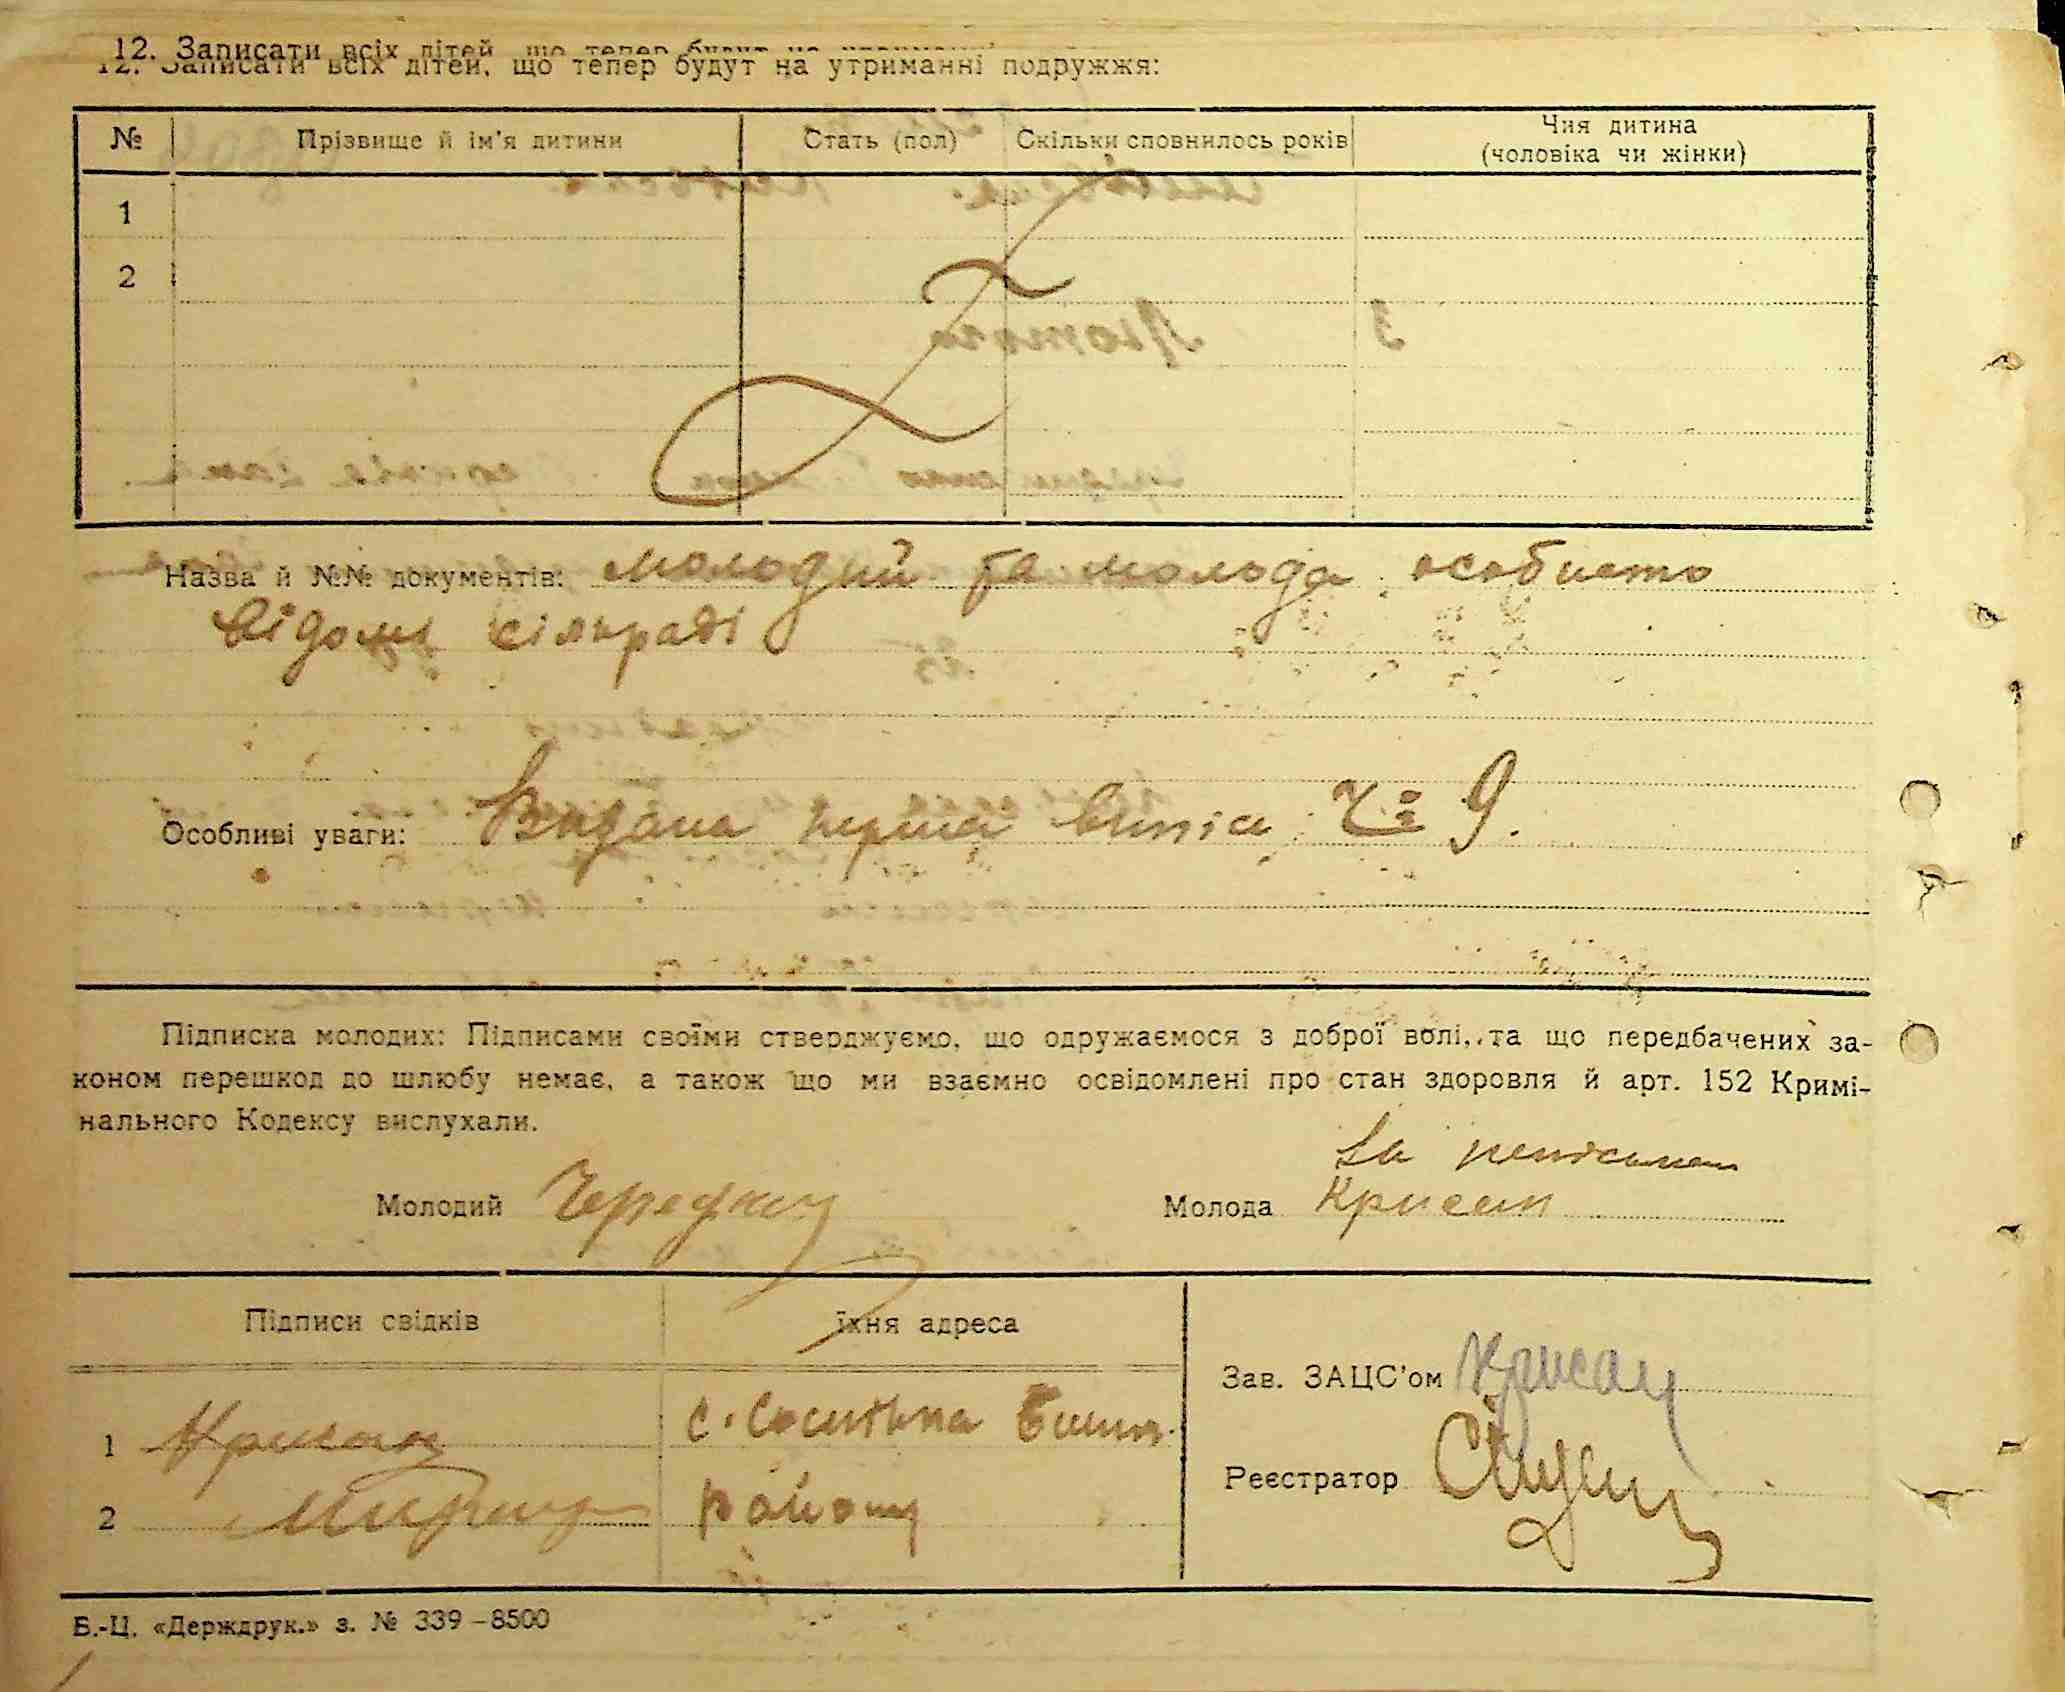 12. Записати всіх дітей, що тепер будут на
12. Записати всіх дітей, що тепер будут на утриманні подружжя:
№ Прізвище й ім'я дитини Стать (пол) Скільки сповнилось років Чия дитина (чоловіка чи жінки)
1
2
Назва й №№ документів: молодий та молода особисто
відомі сільраді
Особливі уваги: Видана перша випись Ч= 9.
Підписка молодих: Підписами своїми стверджуємо, що одружаємося з доброї волі, та що передбачених за-
коном перешкод до шлюбу немає, а також що ми взаємно освідомлені про стан здоровля й арт. 152 Кримі-
нального Кодексу вислухали.
За
Молодий Молода Крисан
Підписи свідків їхня адреса
Зав. ЗАЦС'ом Крисан
1 Крисан с.
Реєстратор
2 району
Б.-Ц. «Держдрук.» з. № 339-8500